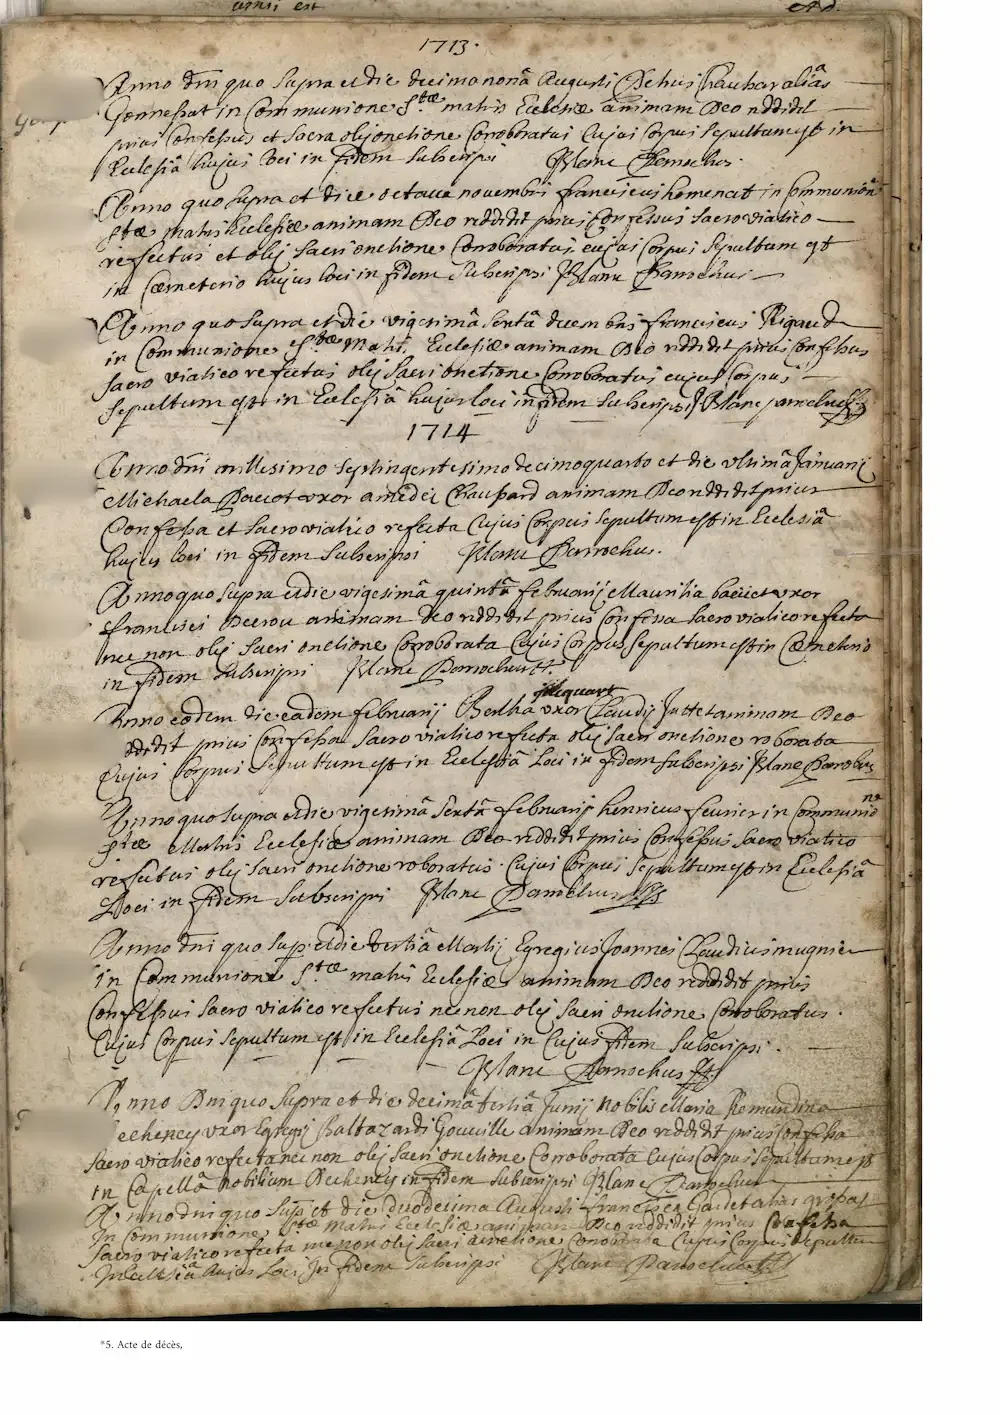 1713.
Anno dni quo supra et die decima nona Augusti Petrus alias
Gonnessat in Communione Stæ matris Ecclesiæ animam Deo reddidit
prius Confessus et sacra olij onctione Corroboratus Cujus Corpus sepultum est in
Ecclesiâ hujus loci in fidem subscripsi Blanc Parrochus.
Anno quo supra et die octava novembris franciscus in Communione
Stæ matris Ecclesiæ animam Deo reddidit prius Confessus sacro viatico
refectus et olij sacri onctione Corroboratus cujus Corpus sepultum est
in Cæmeterio hujus loci in fidem subscripsi Blanc Parrochus
Anno quo supra et die vigesimâ sextâ decembris franciscus Rigaud
in Communione Stæ Matris Ecclesiæ animam Deo reddidit prius Confessus
sacro viatico refectus olij sacri onctione Corroboratus cujus Corpus
sepultum est in Ecclesiâ hujus loci in fidem subscripsi Blanc parrochus
1714
Anno dni millesimo septingentesimo decimoquarto et die ultimâ Januarij
Michaela uxor amedei animam Deo reddidit prius
Confessa et sacro viatico refecta Cujus Corpus sepultum est in Ecclesiâ
hujus loci in fidem subscripsi Blanc Parrochus.
Anno quo supra et die vigesimâ quintâ februarij uxor
francisci animam deo reddidit prius Confessa sacro viatico refecta
nec non olij sacri onctione Corroborata Cujus Corpus sepultum est in Cæmeterio
in fidem subscripsi Blanc Parrochus.
jacquart
Anno eodem die eadem februarij Bertha uxor Claudij animam Deo
reddidit prius Confessa sacro viatico refecta olij sacri onctione roborata
Cujus Corpus sepultum est in Ecclesiâ Loci in fidem subscripsi Blanc Parochus
Anno quo supra et die vigesimâ sextâ februarij henricus fevrier in Communione
stæ Matris Ecclesiæ animam Deo reddidit prius Confessus sacro viatico
refectus olij sacri onctione roboratus. Cujus Corpus sepultum est in Ecclesiâ
Loci in fidem subscripsi Blanc Parrochus
Anno dni quo supra et die tertiâ Martij Egregius Joannes Claudius mugnier
in Communione Stæ matris Ecclesiæ animam Deo reddidit prius
Confessus sacro viatico refectus nec non olij sacri onctione Corroboratus.
Cujus Corpus sepultum est in Ecclesiâ Loci in Cujus fidem subscripsi.
Blanc Parrochus
Anno Dni quo supra et die decimâ tertiâ Junij Nobilis Maria Remundina
echeney uxor Egregij Baltazardi Gouville animam Deo reddidit prius Confessa
sacro viatico refecta nec non olij sacri onctione Corroborata Cujus Corpus sepultum est
in Capellâ nobilium Decheney in fidem subscripsi Blanc Parrochus
Anno dni quo supra et die duodecima Augusti francisca alias
In Communione stæ matris Ecclesiæ animam Deo reddidit prius Confessa
sacro viatico refecta nec non olij sacri onctione Corroborata Cujus Corpus sepultum
in Ecclesiâ hujus Loci In fidem subscripsi Blanc Parrochus
*5. Acte de décès,